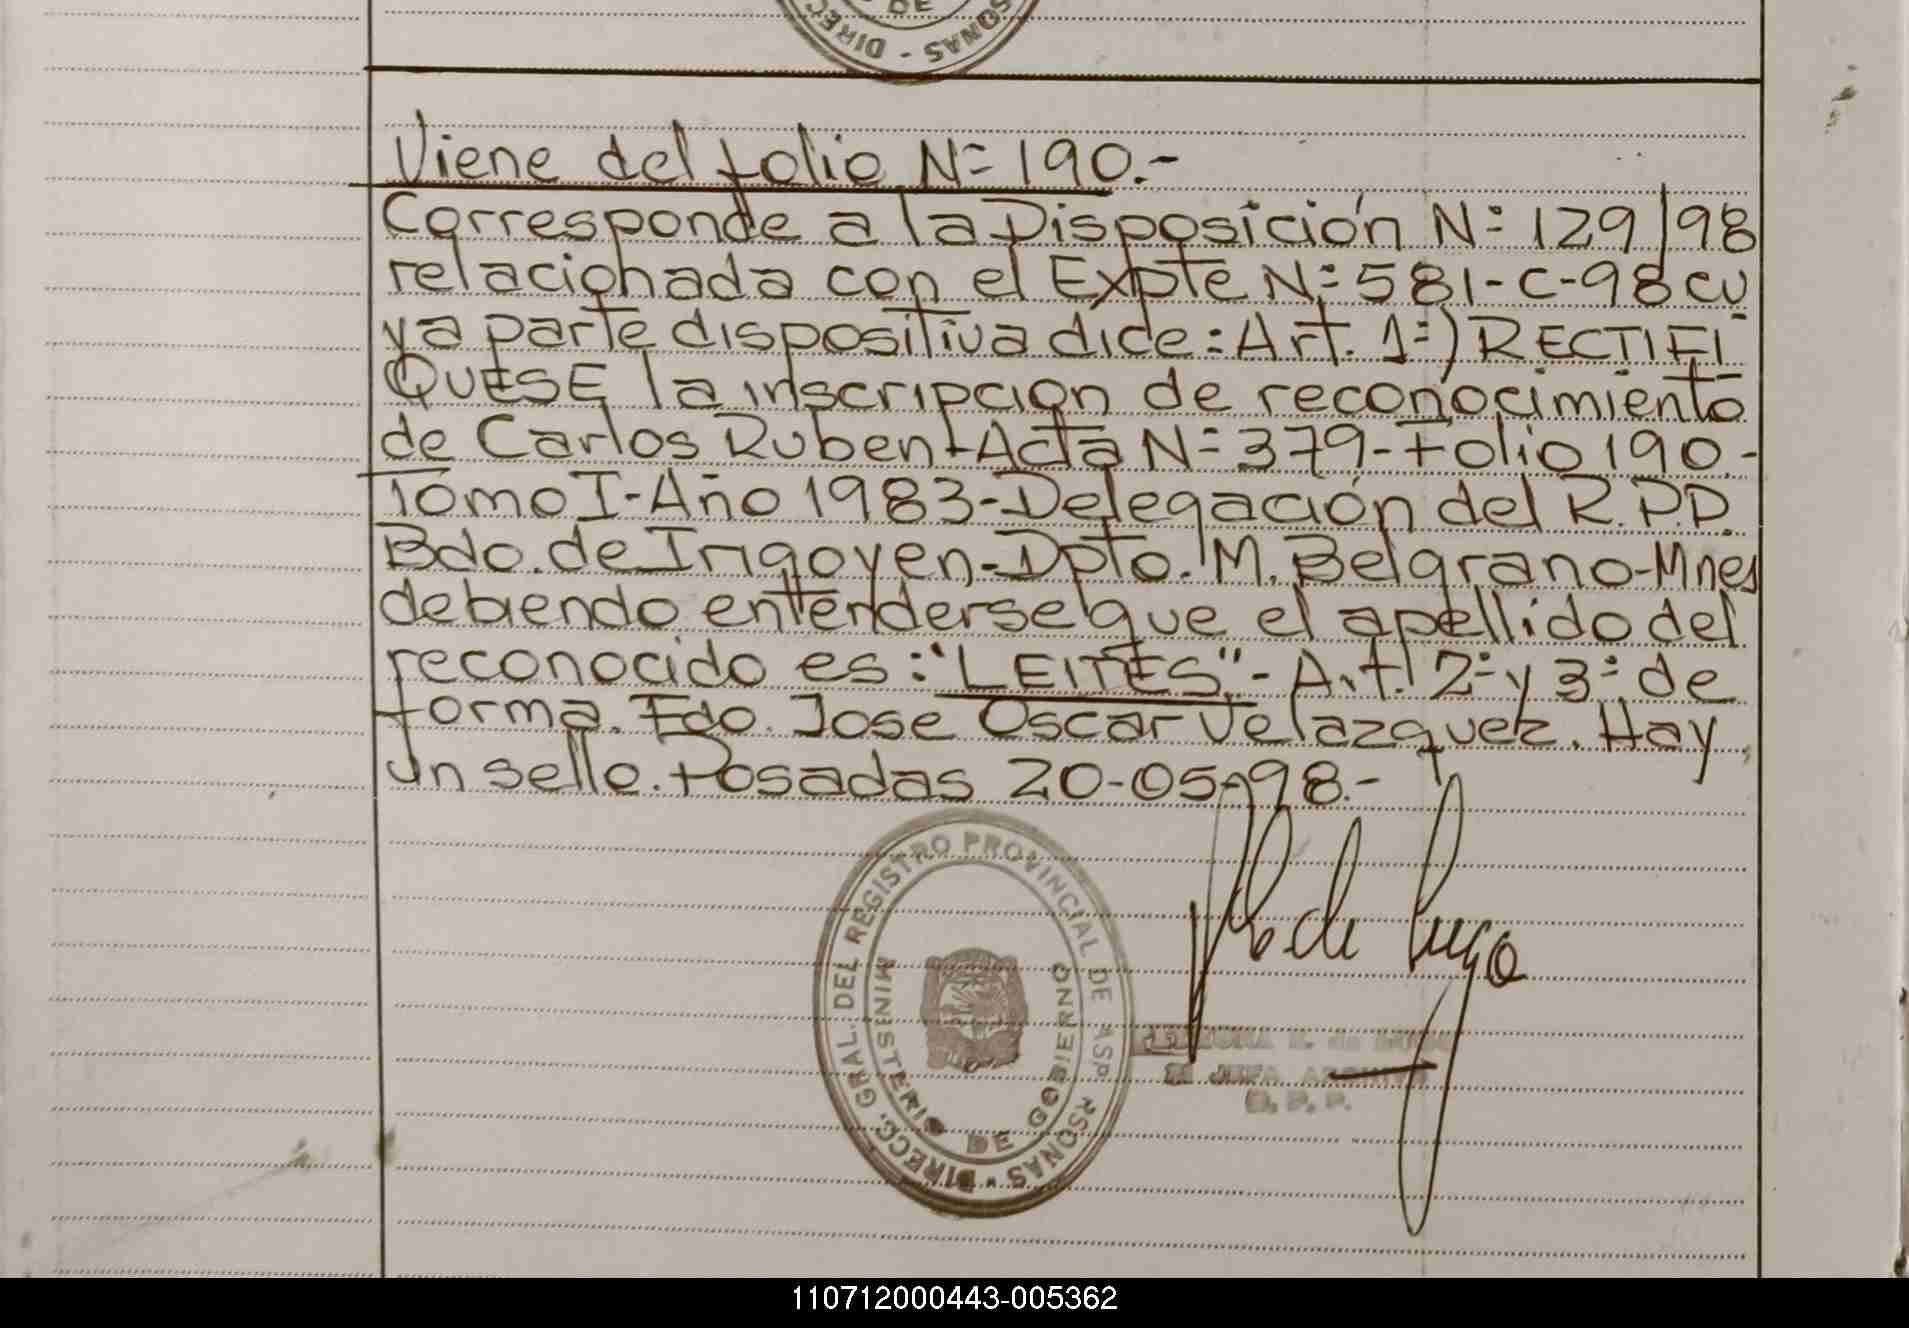 DE
DIRECC
SONAS - DIREC
Viene del folio Nº 190.-
Corresponde a la Disposición Nº 129/98
relacionada con el Expte Nº 581-C-98 cu
ya parte dispositiva dice: Art. 1º) RECTIFI
QUESE la inscripcion de reconocimiento
de Carlos Ruben-Acta Nº 379-Folio 190.-
Tomo I-Año 1983-Delegación del R.P.P.
Bdo. de Irigoyen-Dpto. M. Belgrano-Mnes
debiendo entenderse que el apellido del
reconocido es: "LEITES"- Art. 2º y 3º de
forma. Fdo. Jose Oscar Velazquez. Hay
un sello. Posadas 20-05-98.-
DIRECC. GRAL. DEL REGISTRO PROVINCIAL DE ASP RSONAS
MINISTERIO DE GOBIERNO
de Lugo
JEFA
110712000443-005362